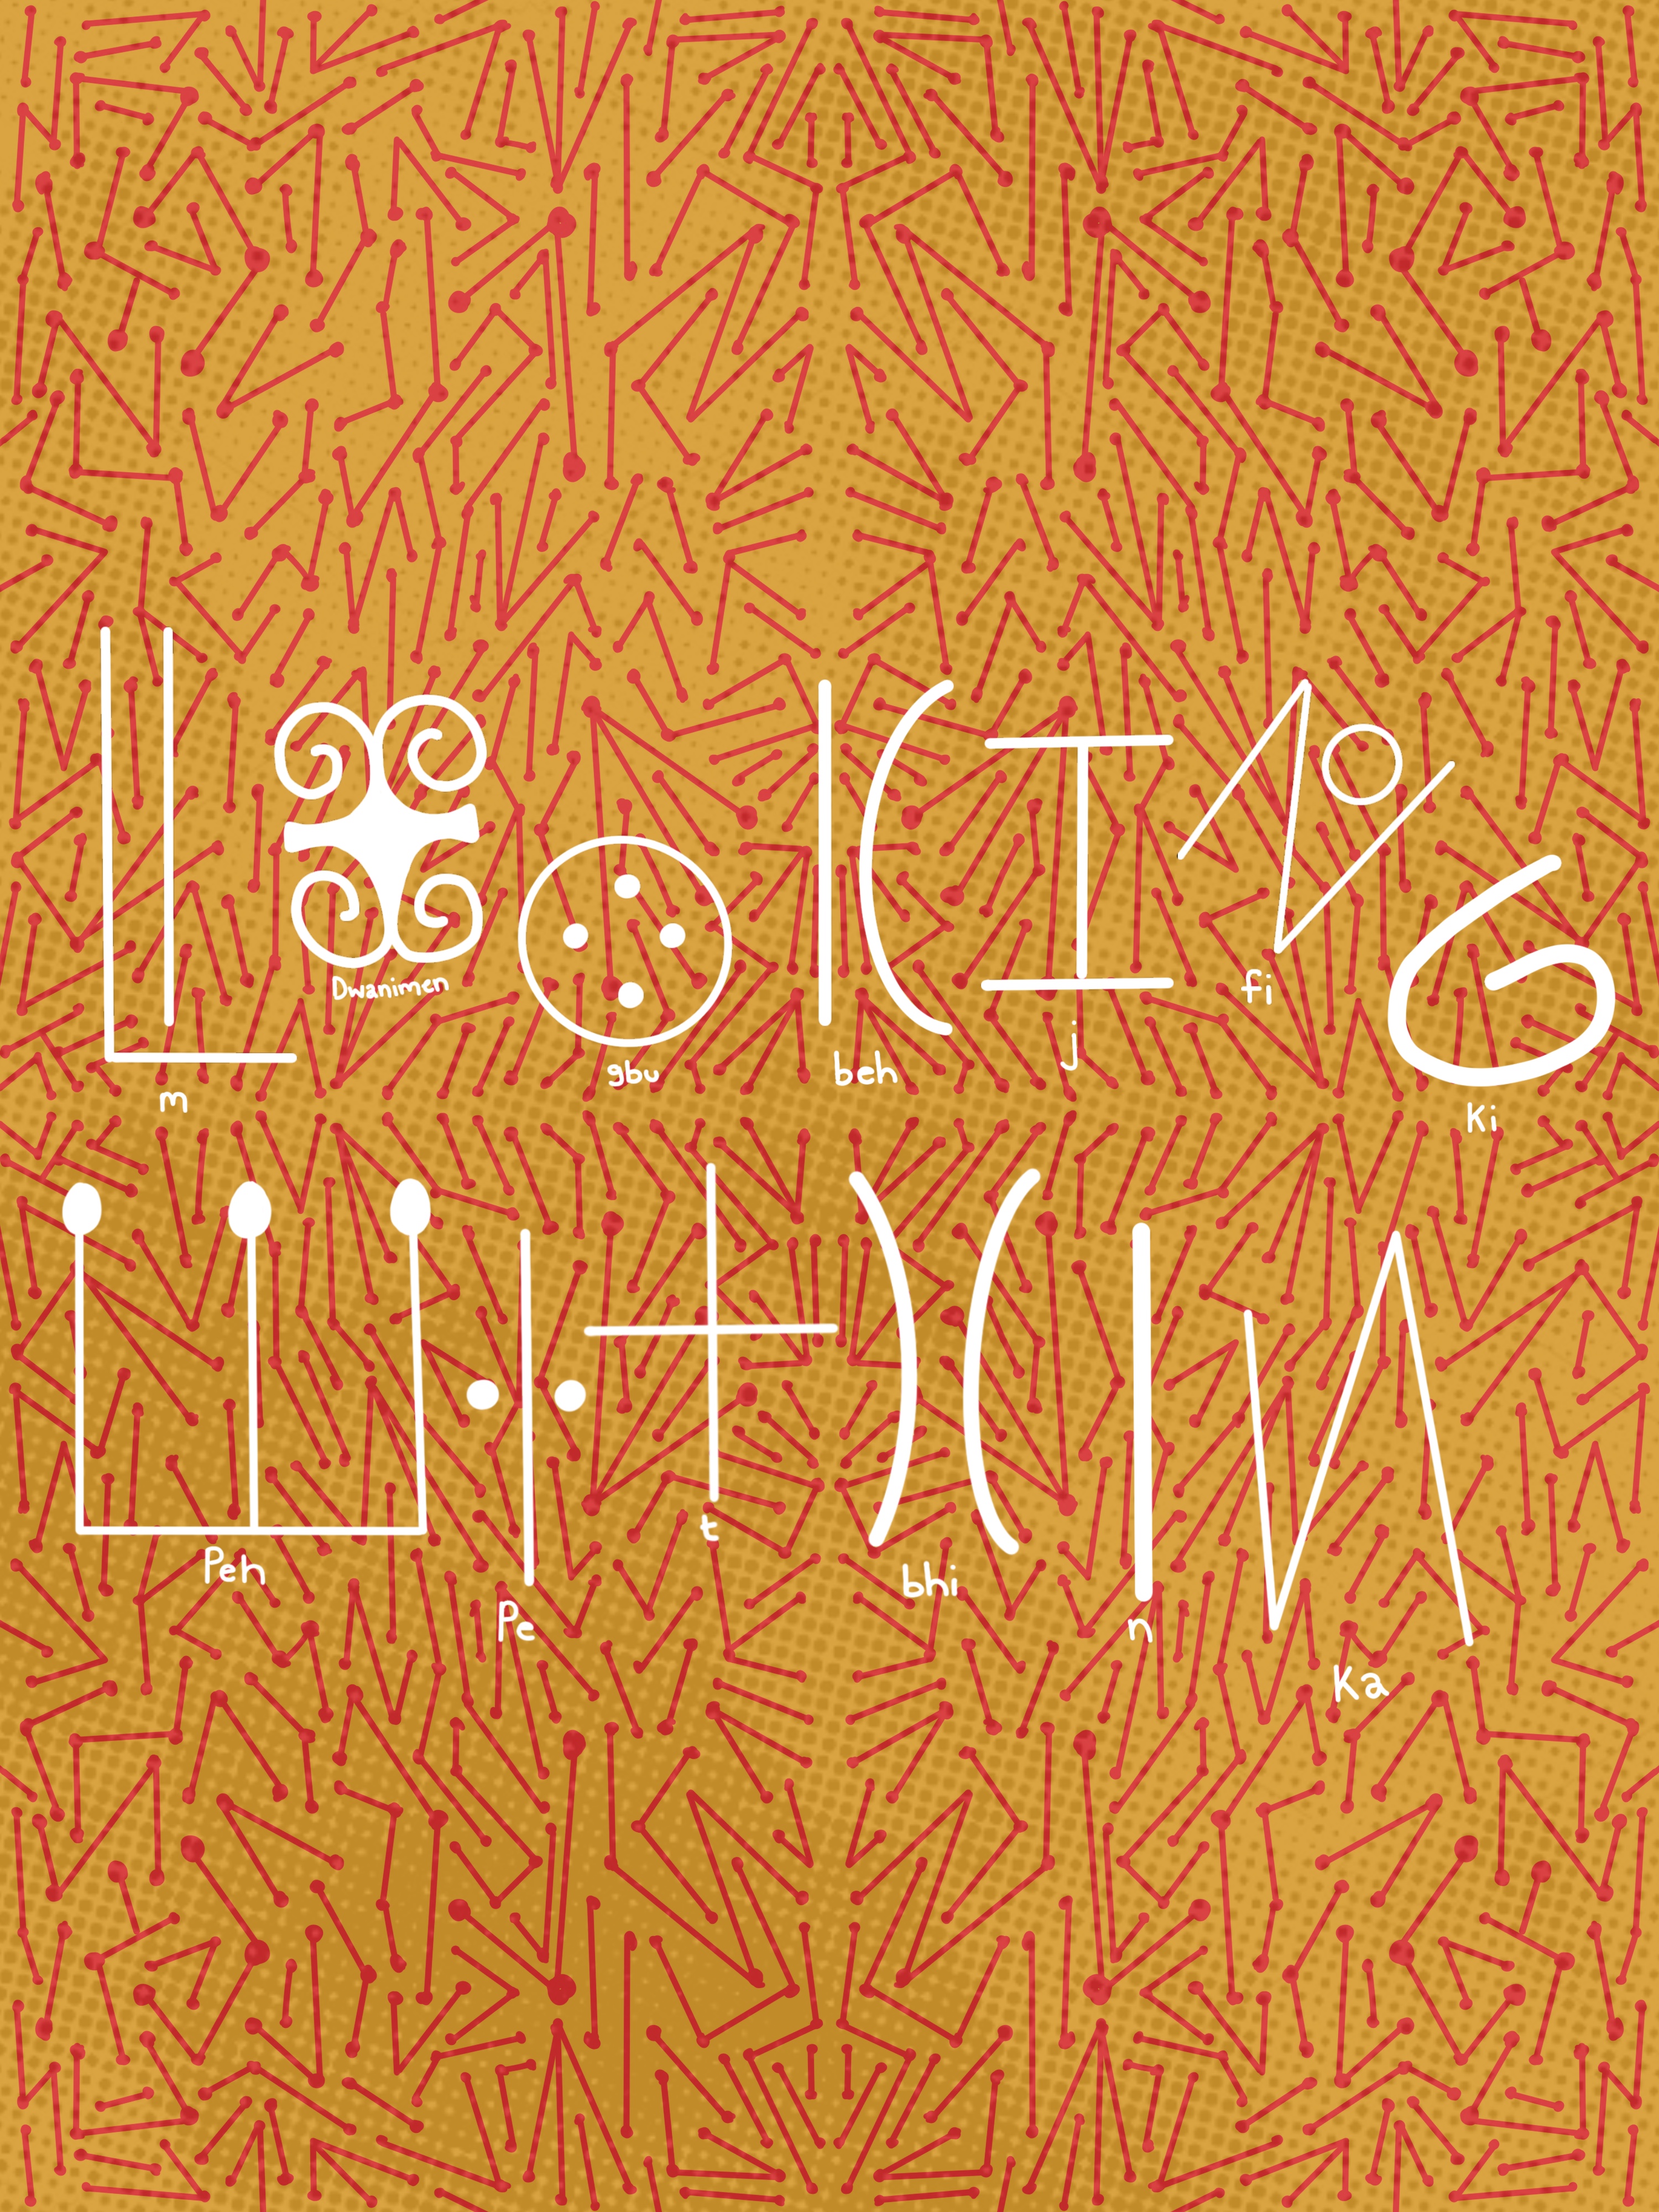 m Dwanimen gbu beh j fi ki
Peh Pe t bhi n Ka